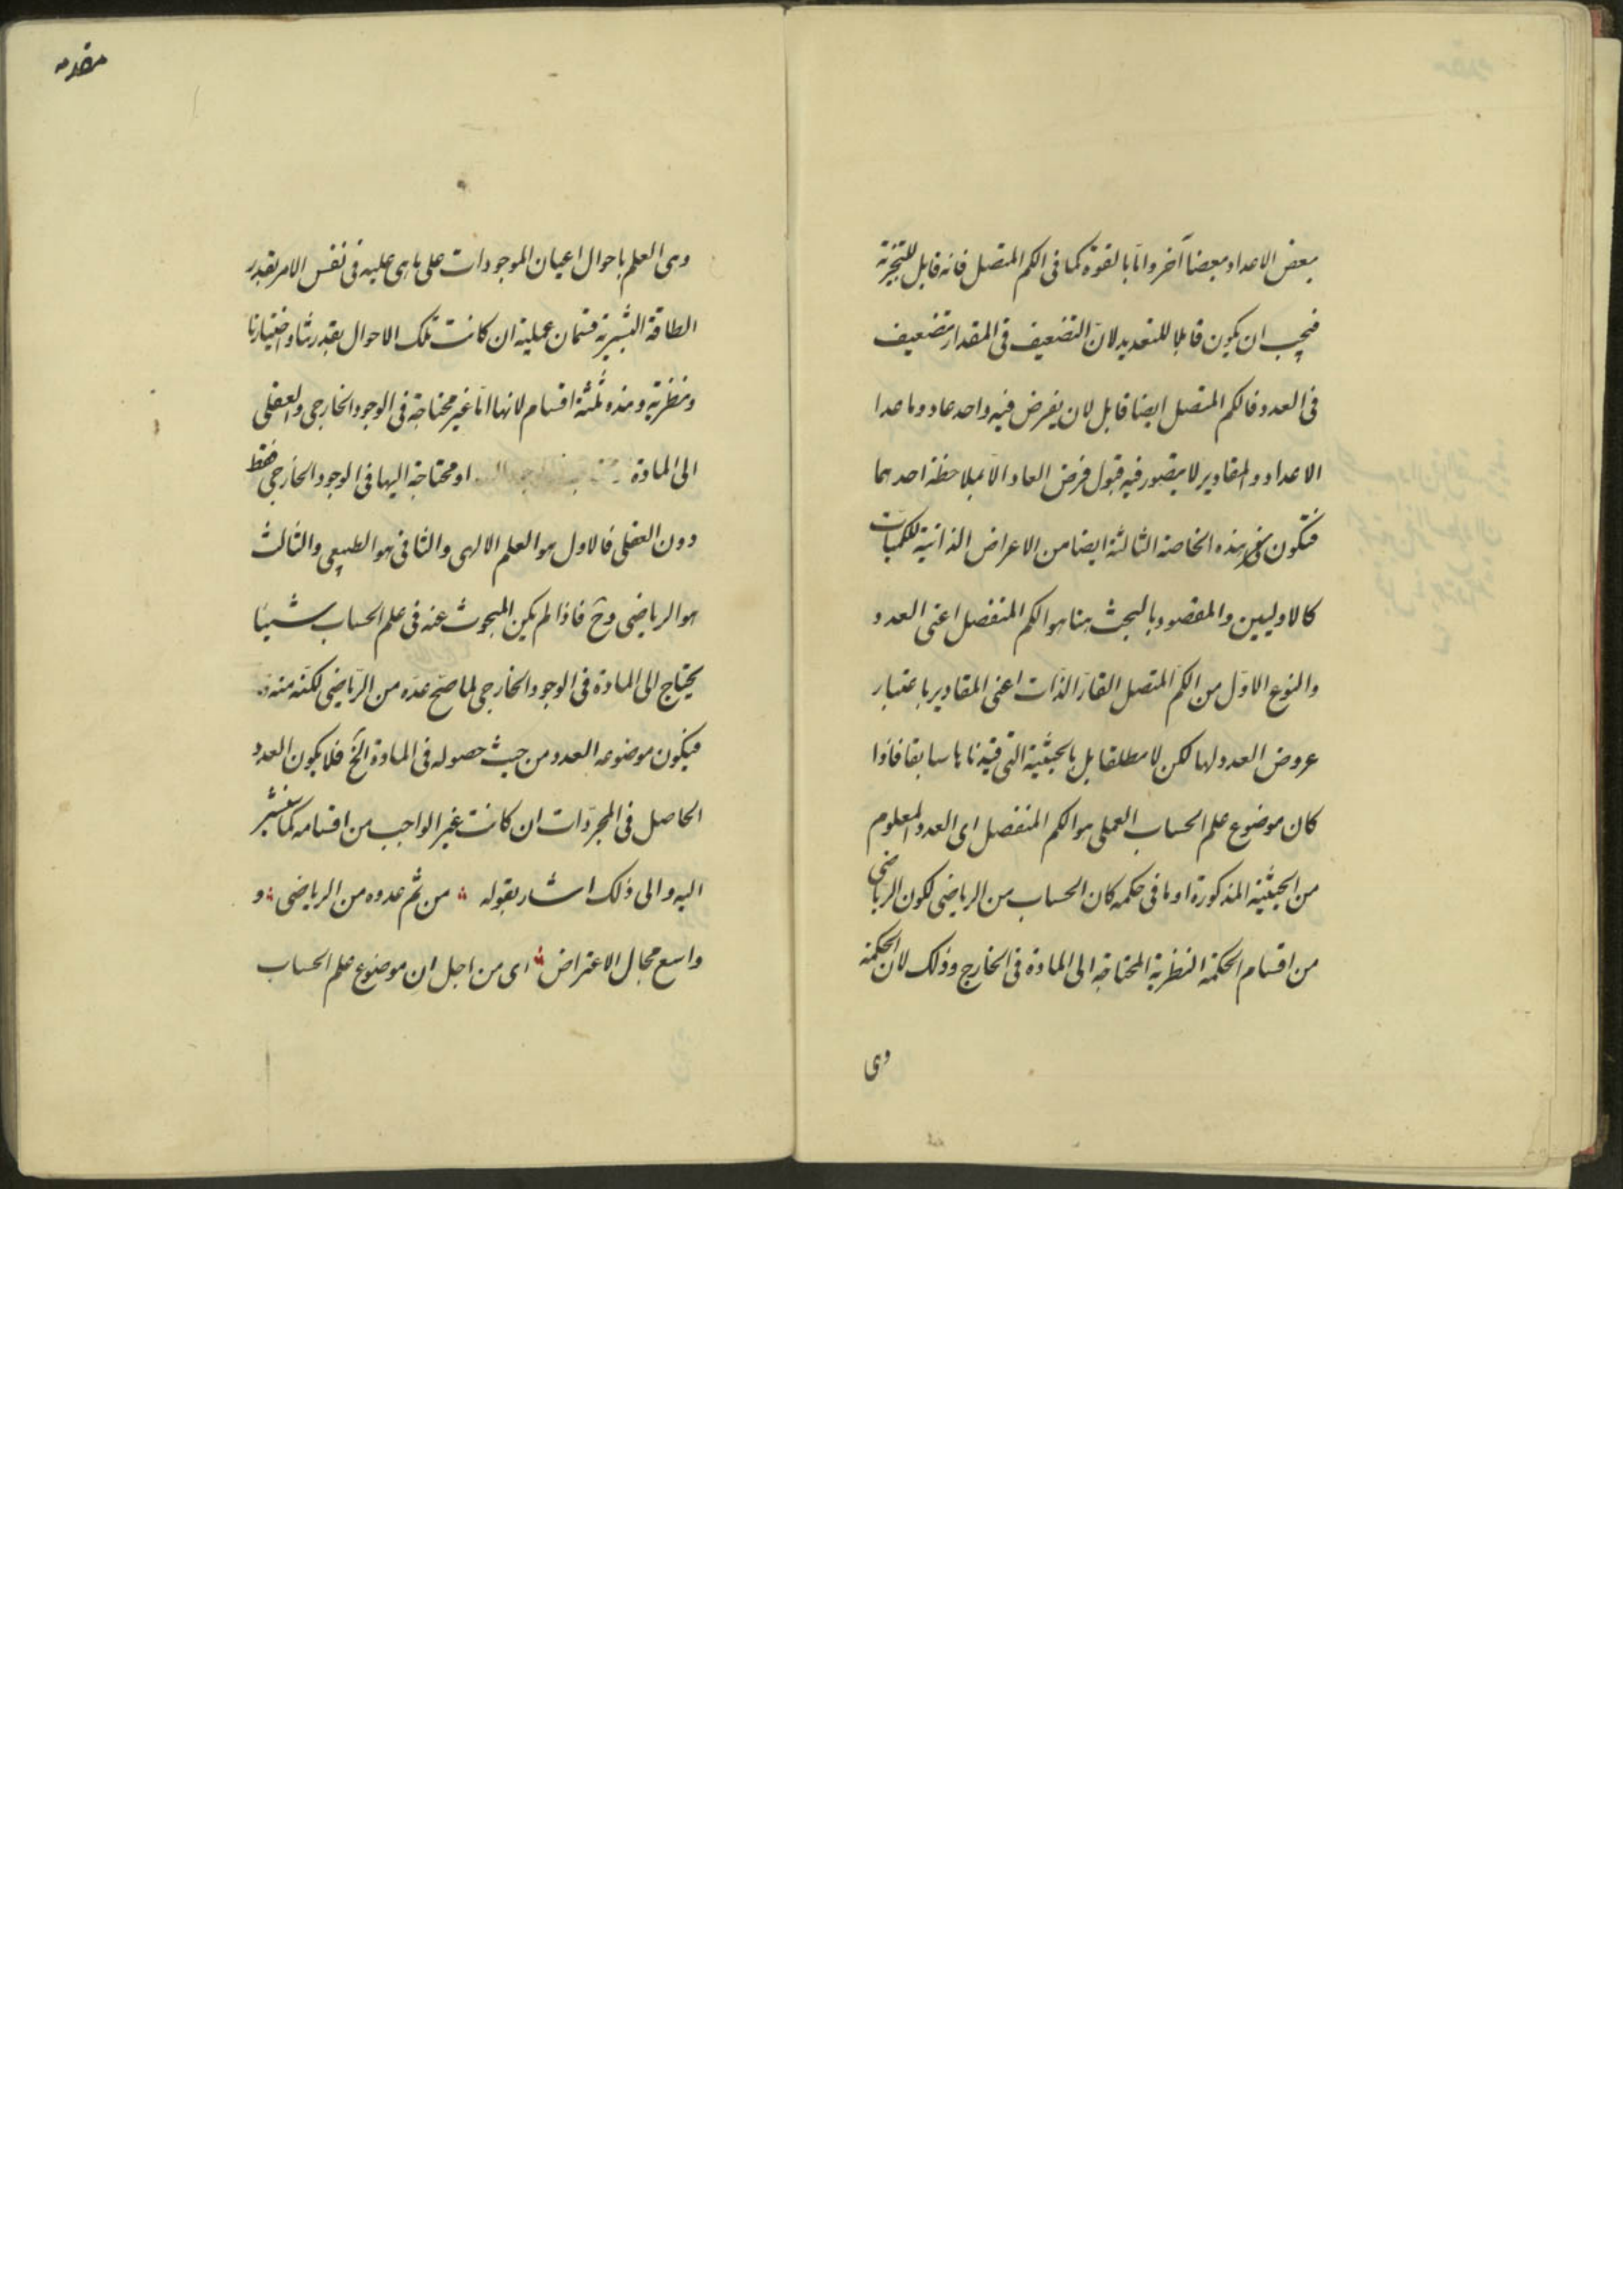 بعض الاعداد بعضا آخر وامّا بالقوة كما فى الكم المتصل فانه قابل للتجزية
فيجب ان يكون قابلا للتعديد لانّ التضعيف فى المقدار تضعيف
فى العدد فالكم المتصل ايضا قابل لان يفرض فيه واحد عاد وما عدا
الاعداد والمقادير لا يتصور فيه قبول فرض العاد الّا بملاحظة احدهما
فتكون هذه الخاصة الثالثة ايضا من الاعراض الذاتية للكميات
كالاوليين والمقصود بالبحث هنا هو الكم المنفصل اعنى العدد
والنوع الاوّل من الكمّ المتصل القارّ الذّات اعنى المقادير باعتبار
عروض العدد لها لكن لا مطلقا بل بالحيثية التى قيدناها سابقا فاذا
كان موضوع علم الحساب العملى هو الكم المنفصل اى العدد المعلوم
من الحيثية المذكورة او ما فى حكمه كان الحساب من الرياضى لكون الرياضى
من اقسام الحكمة النظرية المحتاجة الى المادة فى الخارج وذلك لان الحكمة
وهى
مقدمه
وهى العلم باحوال اعيان الموجودات على ما هى عليه فى نفس الامر بقدر
الطاقة البشرية قسمان عملية ان كانت تلك الاحوال بقدرتنا واختيارنا
ونظرية وهذه ثلثة اقسام لانها امّا غير محتاجة فى الوجود الخارجى والعقلى
الى المادة او محتاجة اليها فى الوجود الخارجى فقط
دون العقلى فالاول هو العلم الالهى والثانى هو الطبيعى والثالث
هو الرياضى وح فاذا لم يكن المبحوث عنه فى علم الحساب شيئا
يحتاج الى المادة فى الوجود الخارجى لما صحّ عدّه من الرّياضى لكنّه منه
فيكون موضوعه العدد من حيث حصوله فى المادة الخ فلا يكون العدد
الحاصل فى المجرّدات ان كانت غير الواجب من اقسامه كما سنشير
اليه والى ذلك اشار بقوله ؞ من ثم عدوه من الرياضى ؞ و
واسع مجال الاعتراض ؞ اى من اجل ان موضوع علم الحساب